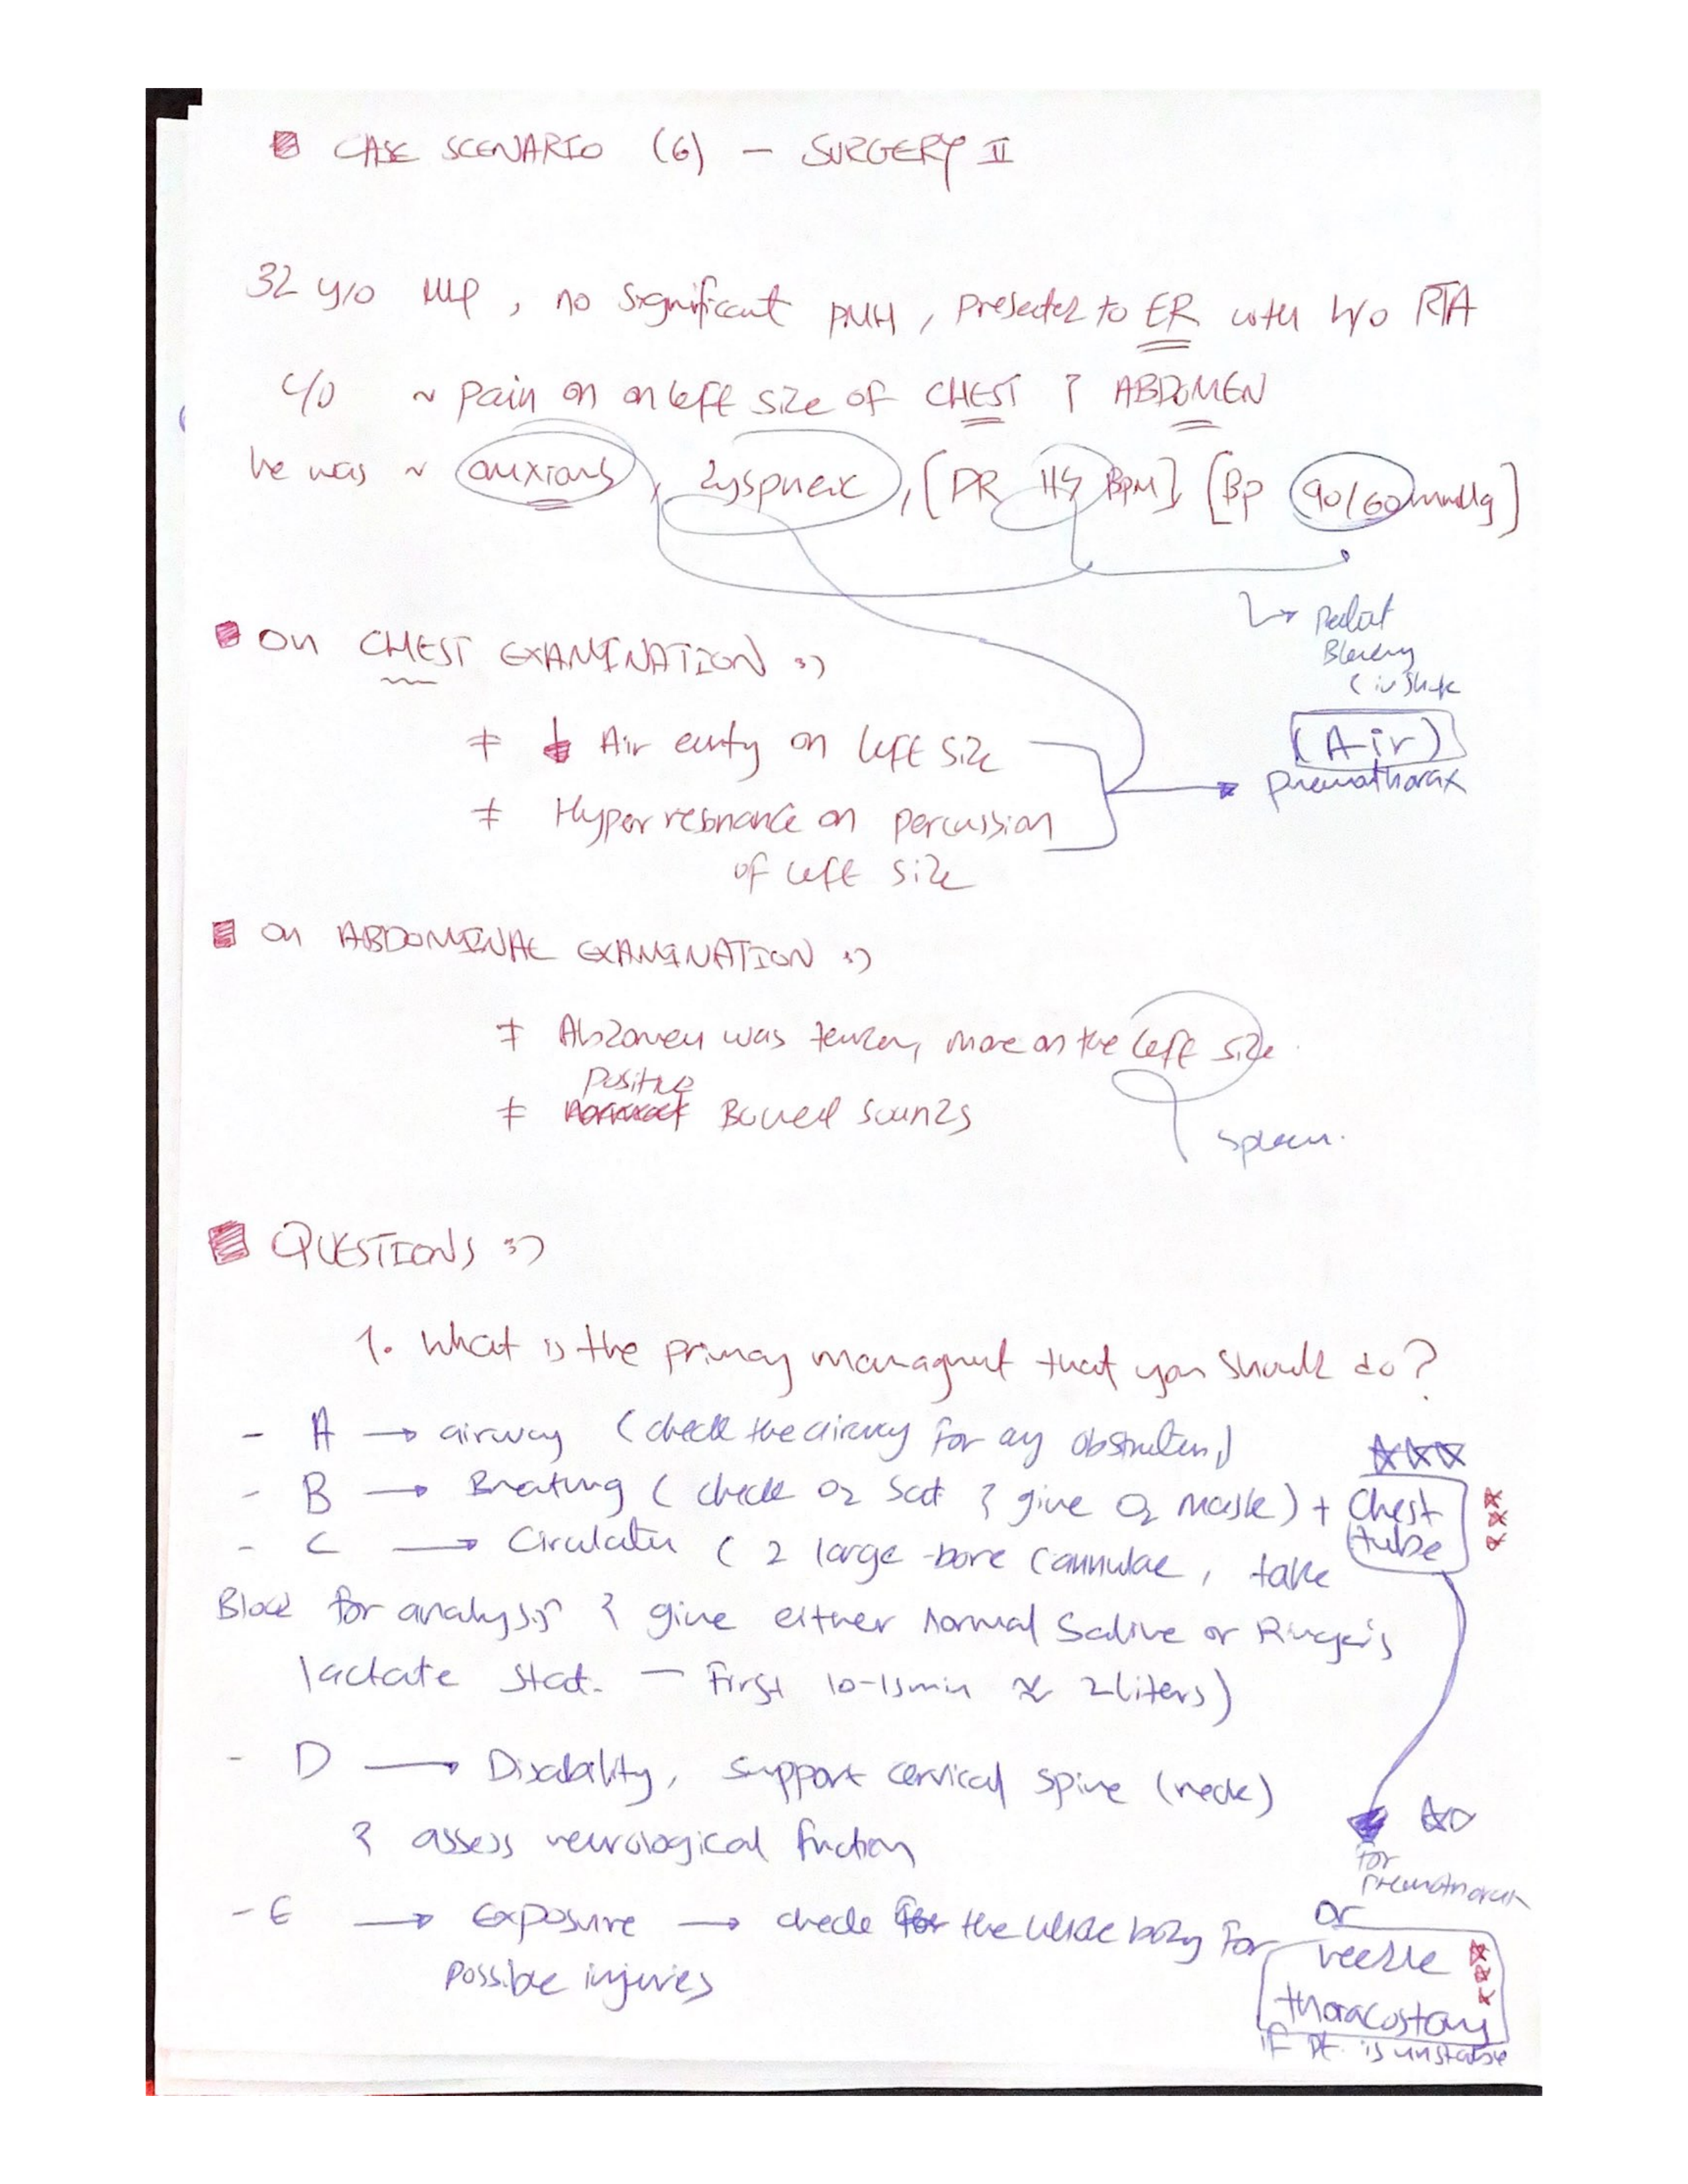 CASE SCENARIO (6) - SURGERY II
32 y/o , no significant PMH, presented to ER with h/o RTA
c/o ~ pain on on left size of CHEST & ABDOMEN
he was ~ anxious, dyspneic, [PR BPM], [BP 90/60 mmHg]
On CHEST EXAMINATION :)
↓ Air entry on left size
Hyper resonance on percussion
of left size
(Air)
pneumothorax
On ABDOMINAL EXAMINATION :)
Abdomen was tender, more on the left size.
Positive
Bowel sounds
Spleen.
QUESTIONS :)
1. What is the primary managment that you should do?
- A → airway (check the airway for any obstruction)
- B → Breathing (check O2 Sat & give O2 mask) + Chest
tube
- C → Circulation (2 large-bore cannulae, take
Blood for analysis & give either normal Saline or Ringer's
lactate stat. - First 10-15min ≈ 2 liters)
- D → Disability, support cervical spine (neck)
& assess neurological function
for
pneumothorax
- E → Exposure → check the whole body for
possible injuries
or
needle
thoracostomy
if pt. is unstable